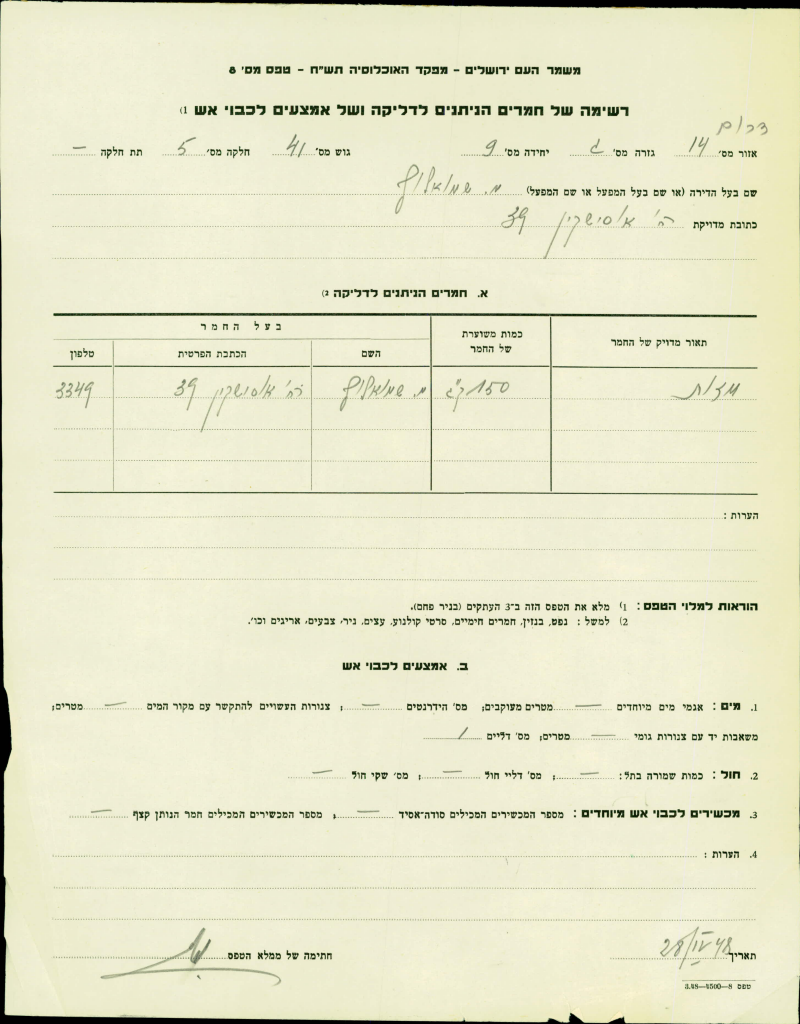 משמר העם ירושלים – מפקד האוכלוסיה תש"ח – טפס מס׳ 8
רשימה של חמרים הניתנים לדליקה ושל אמצעים לכבוי אש (1
דרום
אזור מס׳ 14 גזרה מס׳ ג יחידה מס׳ 9 גוש מס׳ 41 חלקה מס׳ 5 תת חלקה –
שם בעל הדירה (או שם בעל המפעל או שם המפעל) מ. שמואלוף
כתובת מדויקת רח' אוסישקין 39
א. חמרים הניתנים לדליקה (2
תאור מדויק של החמר כמות משוערת של החמר בעל החמר
השם הכתבת הפרטית טלפון
מצות 150 ק"ג מ. שמואלוף רח' אוסישקין 39 3349
הערות :
הוראות למלוי הטפס : 1) מלא את הטפס הזה ב־3 העתקים (בניר פחם).
2) למשל : נפט, בנזין, חמרים חימיים, סרטי קולנוע, עצים, ניר, צבעים, אריגים וכו׳.
ב. אמצעים לכבוי אש
1. מים : אגמי מים מיוחדים — מטרים מעוקבים; מס׳ הידרנטים — ; צנורות העשויים להתקשר עם מקור המים — מטרים;
משאבות יד עם צנורות גומי — מטרים; מס׳ דליים 1
2. חול : כמות שמורה בתל : — ; מס׳ דליי חול — ; מס׳ שקי חול —
3. מכשירים לכבוי אש מיוחדים : מספר המכשירים המכילים סודה־אסיד — ; מספר המכשירים המכילים חמר הנותן קצף —
4. הערות :
תאריך 28/IV 48 חתימה של ממלא הטפס
טפס 8—4500—3.48